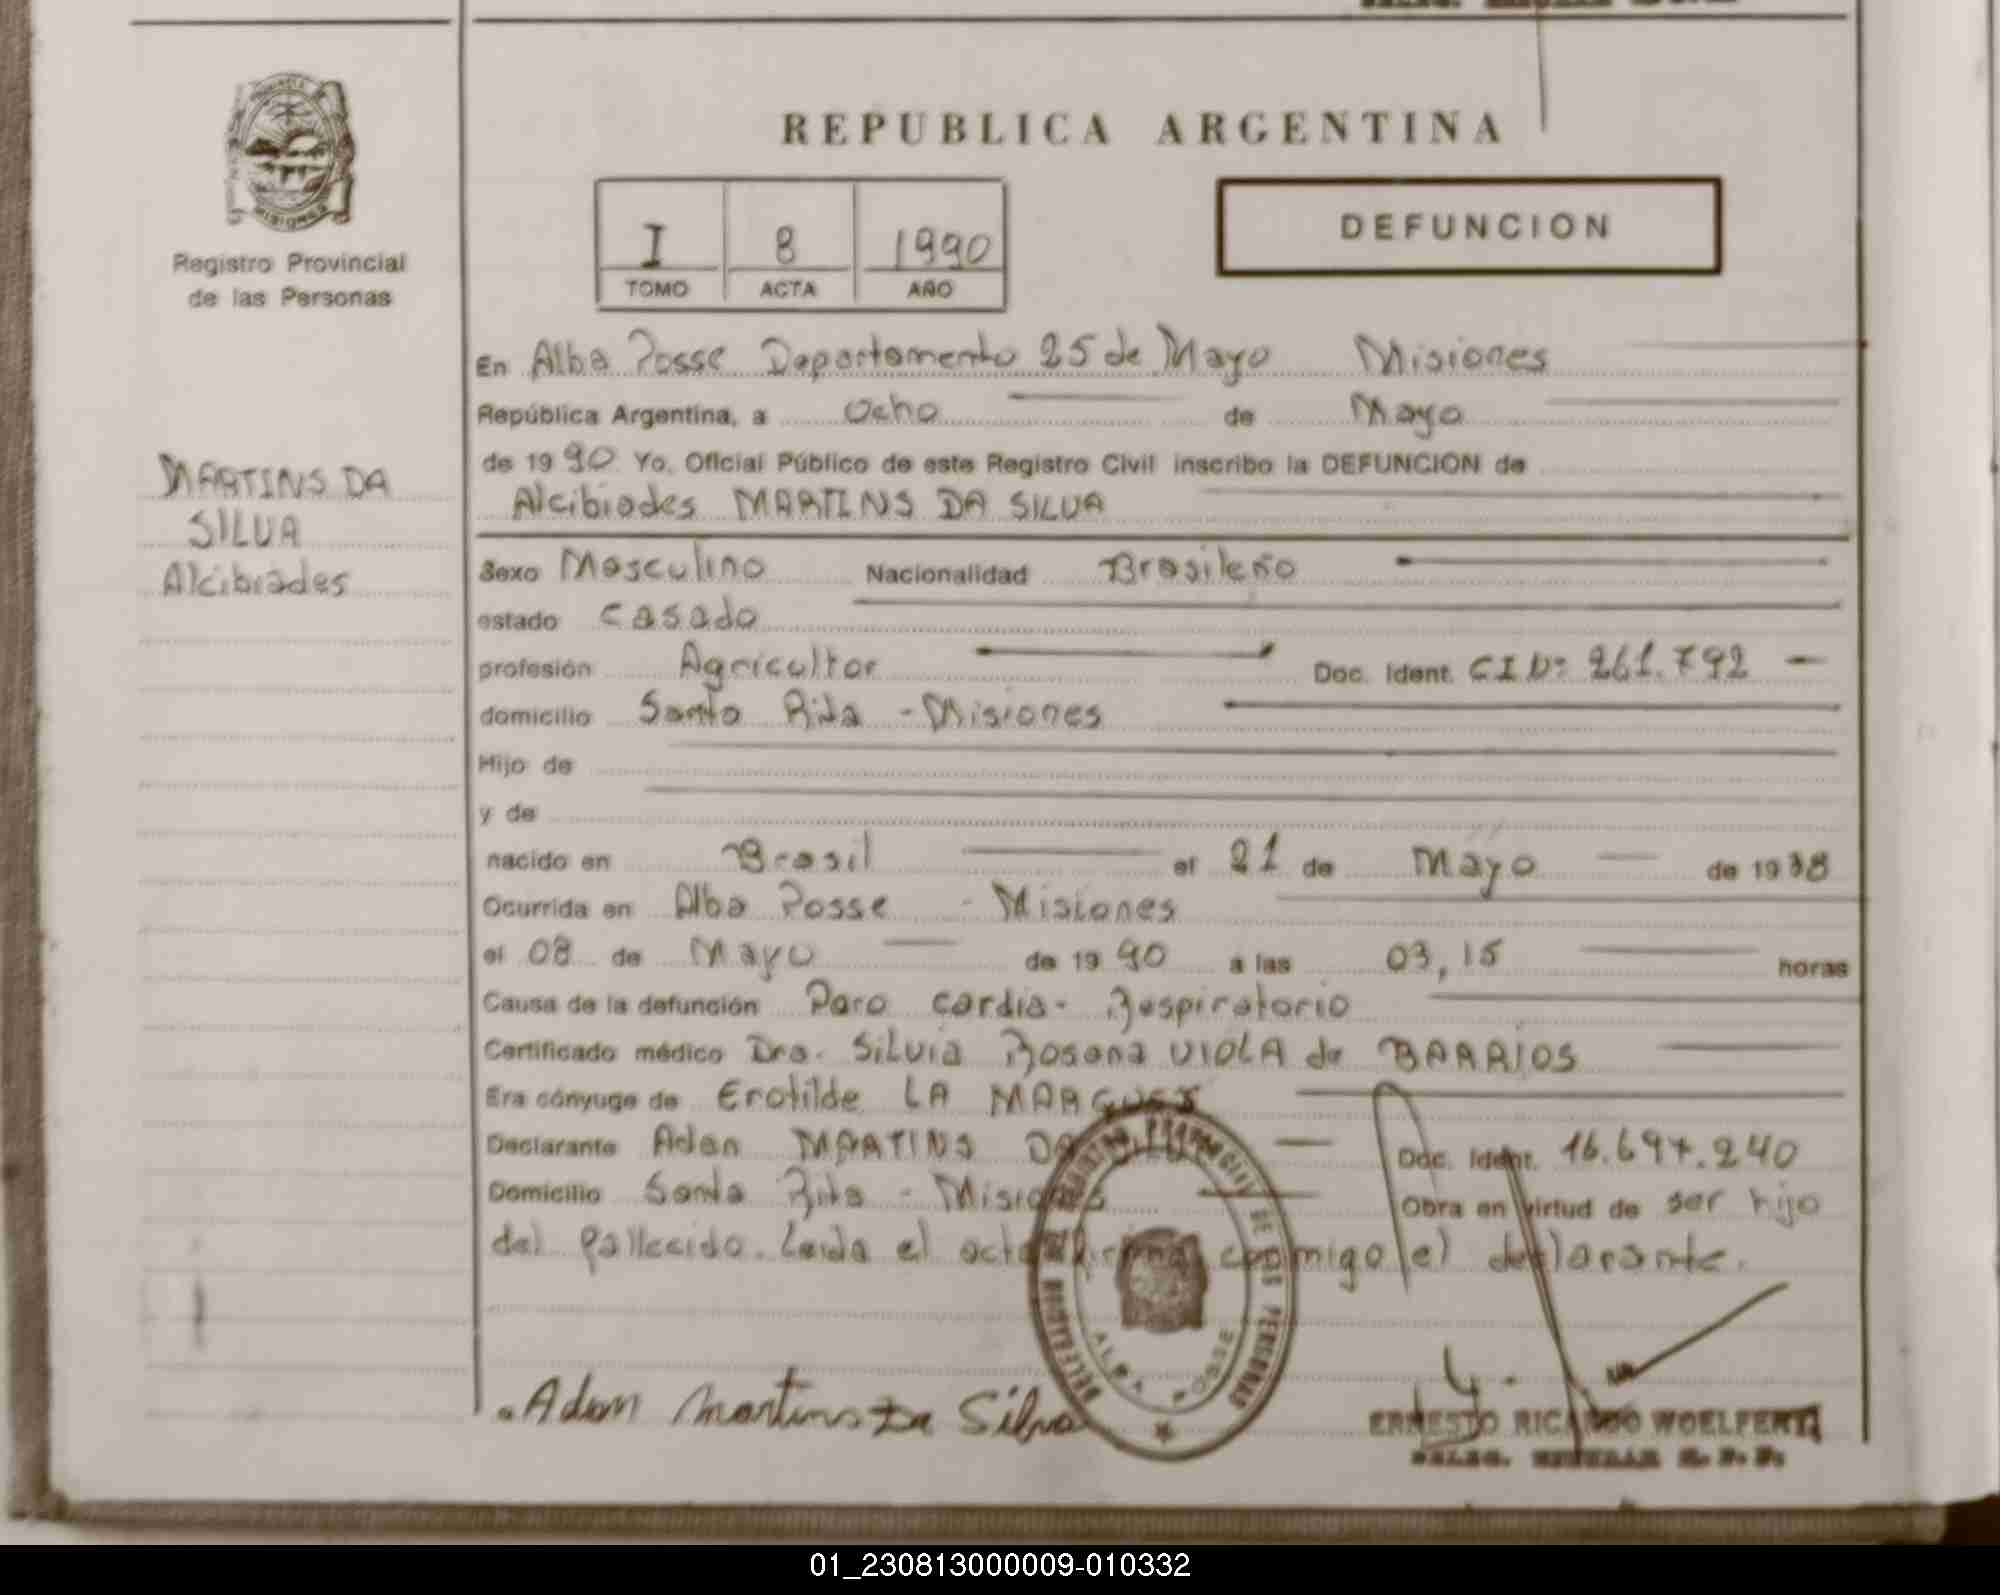 REPUBLICA ARGENTINA
Registro Provincial
de las Personas
I 8 1990
TOMO ACTA AÑO
DEFUNCION
MARTINS DA
SILVA
Alcibiades
En Alba Posse Departamento 25 de Mayo Misiones
República Argentina, a Ocho de Mayo
de 19 90 Yo, Oficial Público de este Registro Civil inscribo la DEFUNCION de
Alcibiades MARTINS DA SILVA
Sexo Masculino Nacionalidad Brasileño
estado casado
profesión Agricultor Doc. Ident. CIN: 261.792
domicilio Santa Rita - Misiones
Hijo de
y de
nacido en Brasil el 21 de Mayo de 19 38
Ocurrida en Alba Posse - Misiones
el 08 de Mayo de 19 90 a las 03,15 horas
Causa de la defunción Paro cardia- Respiratorio
Certificado médico Dra. Silvia Rosana VIOLA de BARRIOS
Era cónyuge de Erotilde LA MARQUES
Declarante Adan MARTINS DA Doc. Ident. 16.697.240
Domicilio Santa Rita - Misiones Obra en virtud de ser hijo
del fallecido. Leida el acta firma conmigo el declarante.
Adam Martins Da Silva
ALBA POSSE
ERNESTO RICARDO WOELFERT
DELEG. TITULAR R. P. P.
01_230813000009-010332